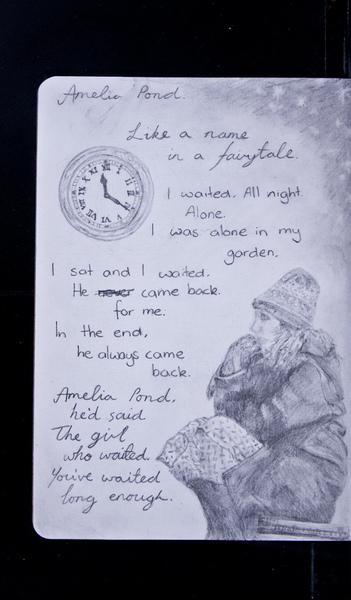 Amelia Pond.
Like a name
in a fairytale.
I waited. All night.
Alone.
I was alone in my
garden.
I sat and I waited.
He never came back.
for me.
In the end,
he always came
back.
Amelia Pond,
he'd said
The girl
who waited.
You've waited
long enough.